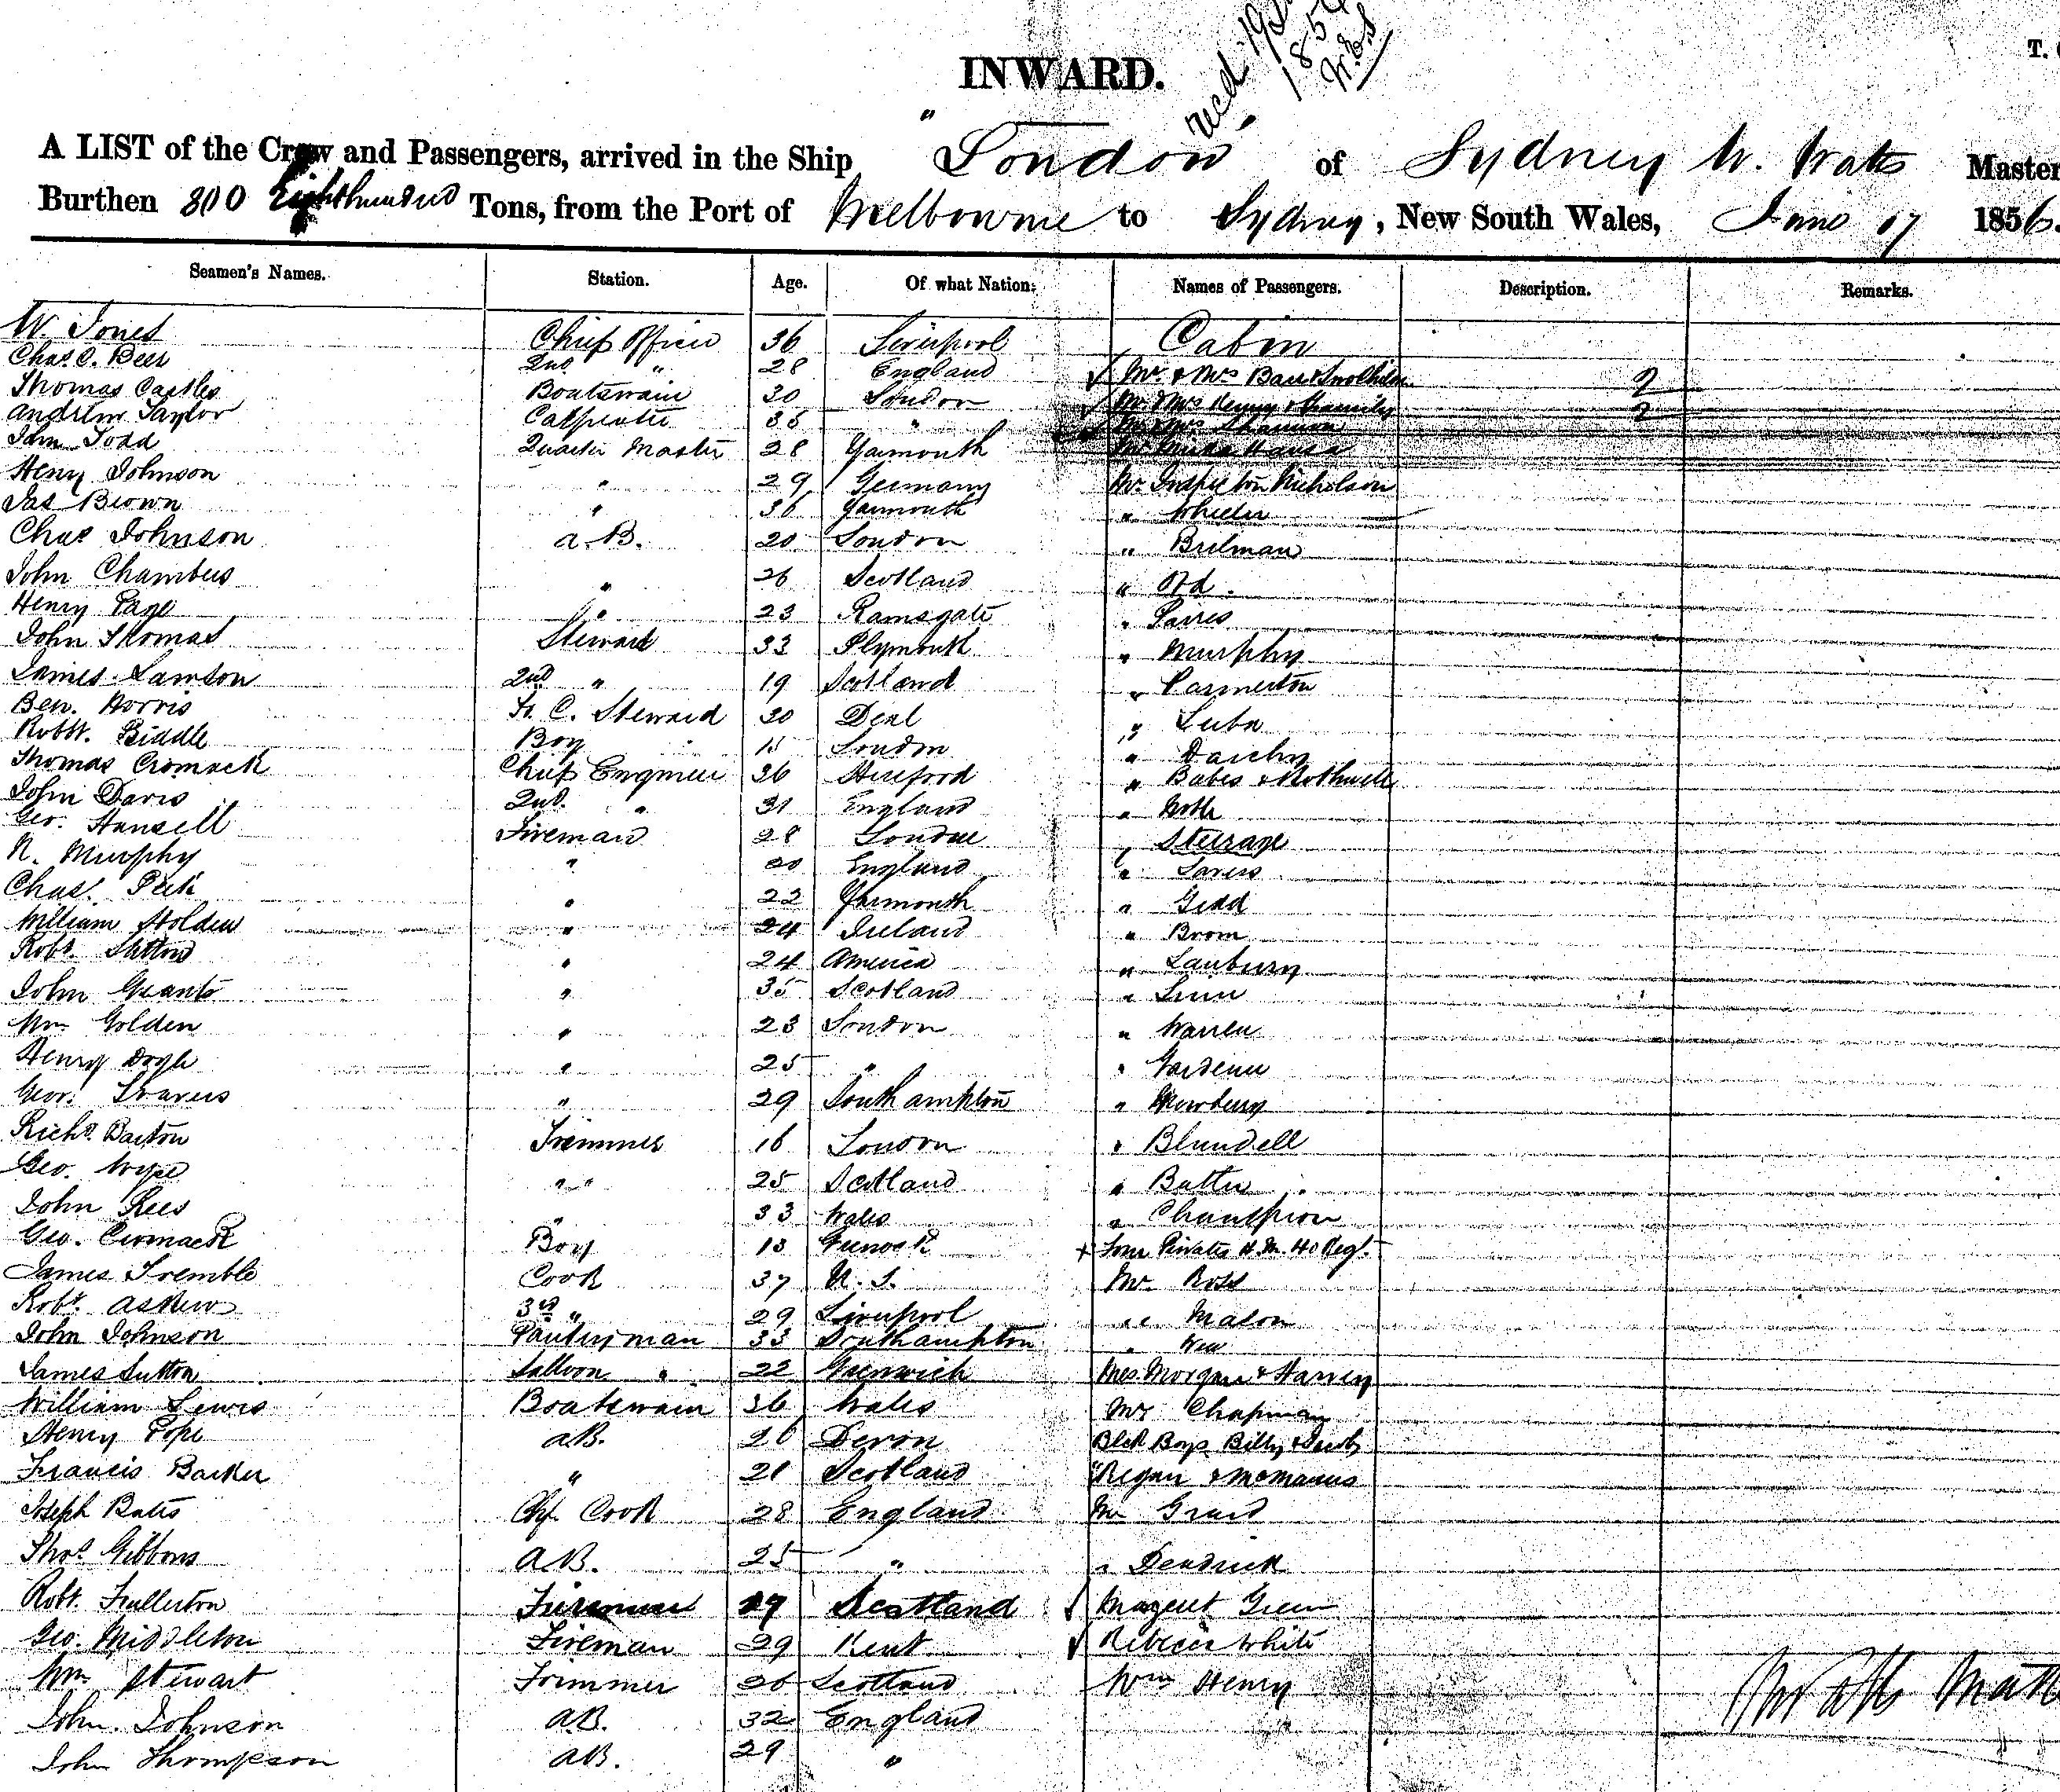 INWARD.
recd. 19
185
A LIST of the Crew and Passengers, arrived in the Ship "London" of Sydney W. Watts Master
Burthen 800 Eighthundred Tons, from the Port of Melbourne to Sydney, New South Wales, June 17 1856.
Seamen's Names. Station. Age. Of what Nation. Names of Passengers. Description. Remarks.
W. Jones Chief Officer 36 Liverpool Cabin
Chas. C. Beer 2nd " 28 England Mr. & Mrs 2
Thomas Castles Boatswain 30 London Mr & Mrs Kenny & Family 2
Andrew Taylor Carpenter 35 " Mr & Mrs Shannon
John Todd Quarter Master 28 Yarmouth
Henry Johnson " 29 Germany Mr. Inspector Nicholson
Jas Brown " 36 Yarmouth " Wheeler
Chas Johnson A.B. 20 London " Bulman
John Chambers " 26 Scotland " Ord.
Henry Page " 23 Ramsgate "
John Thomas Steward 33 Plymouth " Murphy
James Lawson 2nd " 19 Scotland " Parmerton
Ben. Norris Fr. C. Steward 30 Deal "
Robt. Biddle Boy 15 London "
Thomas Cromack Chief Engineer 36 Hereford " & Rothwell
John Davis 2nd. " 31 England "
Geo. Hansell Fireman 28 London Steerage
N. Murphy " 20 England "
Chas. Peek " 22 Yarmouth "
William Holden " 24 Ireland " Brom
Robt. Sutton " 24 America " Lanbury
John Grant " 35 Scotland "
Wm Golden " 23 London " Warren
Henry Doyle " 25 " " Gardener
Geo. Travers " 29 Southampton " Newbury
Richd. Barton Trimmer 16 London " Blundell
Geo. Wype " " 25 Scotland " Butler
John Rees " 33 Wales " Champion
Geo. Cromack Boy 13 Greenock + Four Privates H. M. 40 Regt.
James Tremble Cook 37 U. S. Mr. Ross
Robt. Askew 3rd " 29 Liverpool " Mason
John Johnson Pantryman 33 Southampton "
James Sutton Salloon " 22 Greenwich Mrs. Morgan & Harvey
William Lewis Boatswain 36 Wales Mr Chapman
Henry Pope A.B. 26 Devon Blck Boys Billy & Jacob
Francis Barker " 21 Scotland " Regan & McManus
Joseph Bates Chf. Cook 28 England Mr
Thos. Gibbons A.B. 25 " "
Robt. Fullerton Fireman 29 Scotland Margeret Green
Geo. Middleton Fireman 29 Kent Rebecca White
Wm Stewart Trimmer 26 Scotland Wm Henry
John. Johnson A.B. 32 England
John Thompson A.B. 29 "